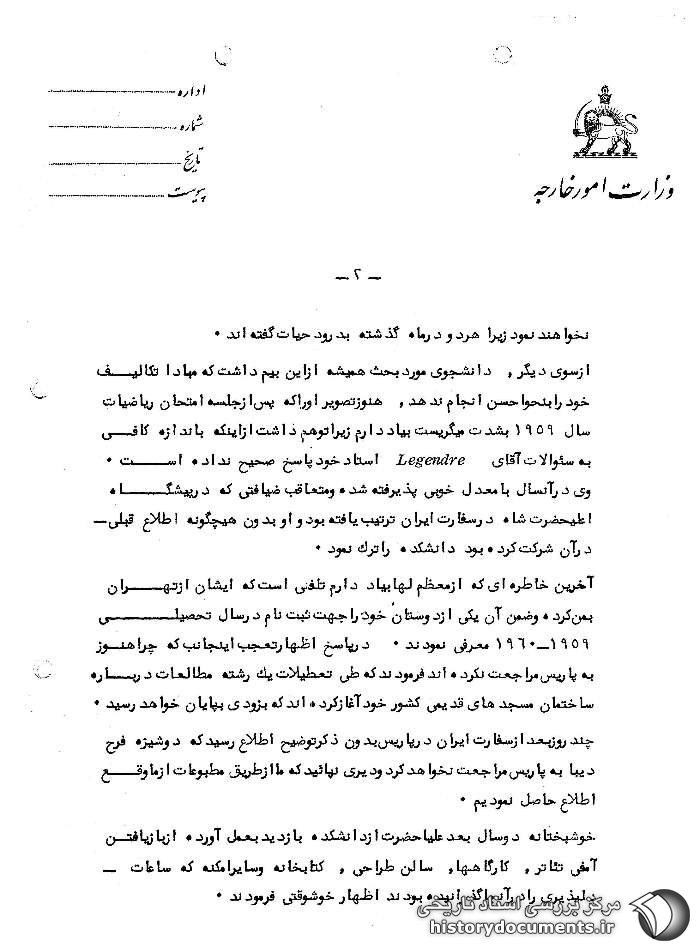 اداره
شماره
تاریخ
پیوست
وزارت امور خارجه
— ۲ —
نخواهند نمود زیرا هردو درماه گذشته بدرود حیات گفته اند ۰
ازسوی دیگر , دانشجوی مورد بحث همیشه ازاین بیم داشت که مبادا تکالیف
خود را بنحواحسن انجام ندهد , هنوزتصویر اوراکه پس ازجلسه امتحان ریاضیات
سال ۱۹۵۹ بشدت میگریست بیاد دارم زیرا توهم داشت ازاینکه باندازه کافی
به سئوالات آقای Legendre استاد خود پاسخ صحیح نداده است ۰
وی در آنسال با معدل خوبی پذیرفته شده و متعاقب ضیافتی که درپیشگاه
اعلیحضرت شاه درسفارت ایران ترتیب یافته بود و او بدون هیچگونه اطلاع قبلی —
درآن شرکت کرده بود دانشکده را ترك نمود ۰
آخرین خاطره ای که ازمعظم لها بیاد دارم تلفنی است که ایشان ازتهران
بمن کرده وضمن آن یکی ازدوستان خود را جهت ثبت نام درسال تحصیلی
۱۹۵۹—۱۹۶۰ معرفی نمودند ۰ درپاسخ اظهارتعجب اینجانب که چرا هنوز
به پاریس مراجعت نکرده اند فرمودند که طی تعطیلات یك رشته مطالعات درباره
ساختمان مسجد های قدیمی کشور خود آغاز کرده اند که بزودی بپایان خواهد رسید ۰
چند روزبعد ازسفارت ایران درپاریس بدون ذکرتوضیح اطلاع رسید که دوشیزه فرح
دیبا به پاریس مراجعت نخواهد کرد ودیری نپائید که ما ازطریق مطبوعات ازماوقع
اطلاع حاصل نمودیم ۰
خوشبختانه دوسال بعد علیاحضرت ازدانشکده بازدید بعمل آورده ازبازیافتن
آمفی تئاتر , کارگاهها , سالن طراحی , کتابخانه وسایرامکنه که ساعات —
دلپذیری را درآنجا گذرانیده بودند اظهار خوشوقتی فرمودند ۰
مرکز بررسی اسناد تاریخی
historydocuments.ir